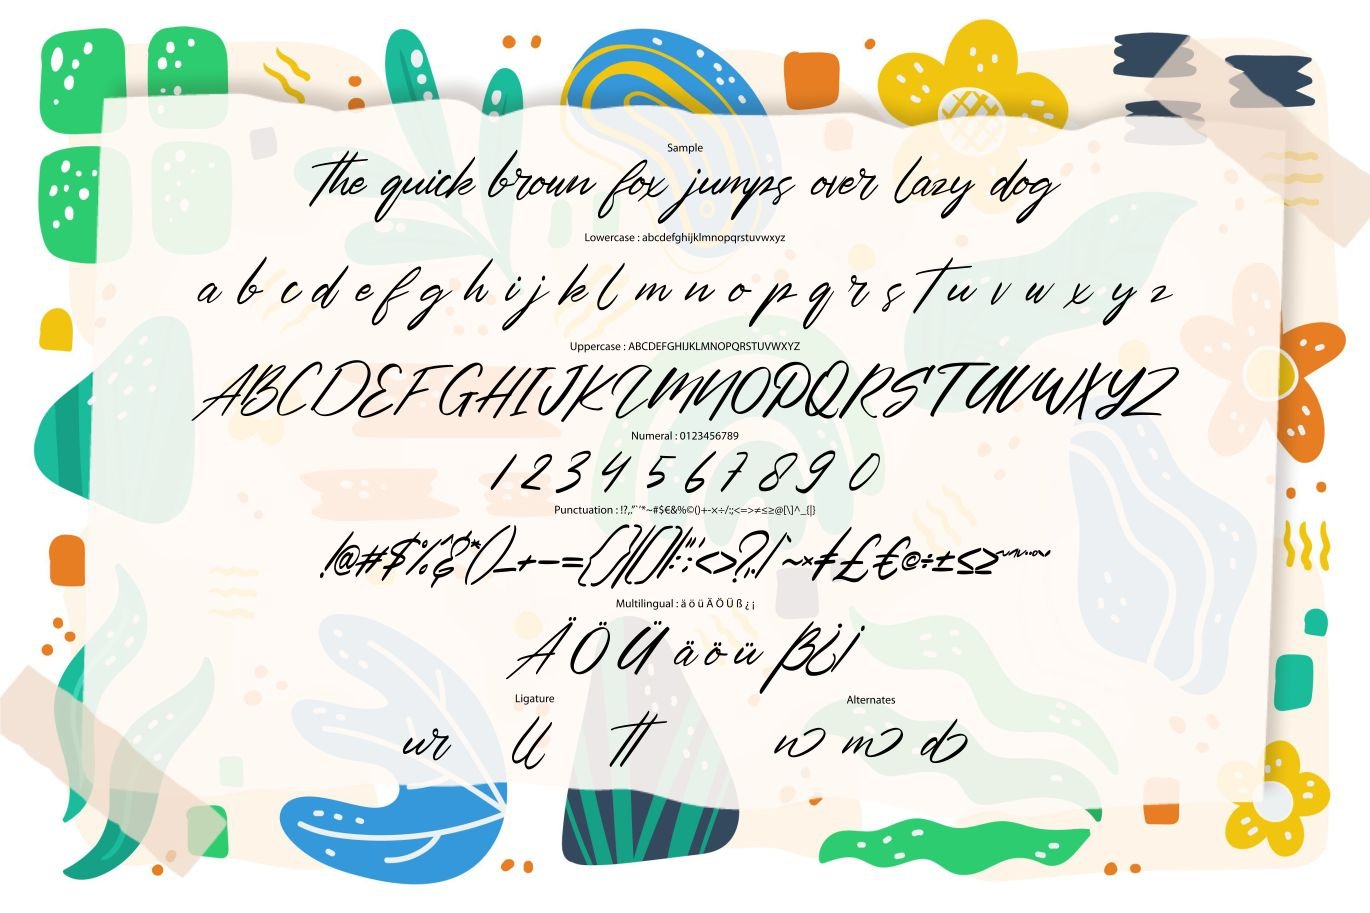 Sample
the quick brown fox jumps over lazy dog
Lowercase : abcdefghijklmnopqrstuvwxyz
a b c d e f g h i j k l m n o p q r s t u v w x y z
Uppercase : ABCDEFGHIJKLMNOPQRSTUVWXYZ
ABCDEFGHIJKLMNOPQRSTUVWXYZ
Numeral : 0123456789
1 2 3 4 5 6 7 8 9 0
Punctuation : !?,."`'*~#$€&%©()+-×÷/:;<=>≠≤≥@[\]^_{|}
Multilingual : ä ö ü Ä Ö Ü ß ¿ ¡
Ä Ö Ü ä ö ü ß ¿ ¡
Ligature Alternates
ur ll tt n m d